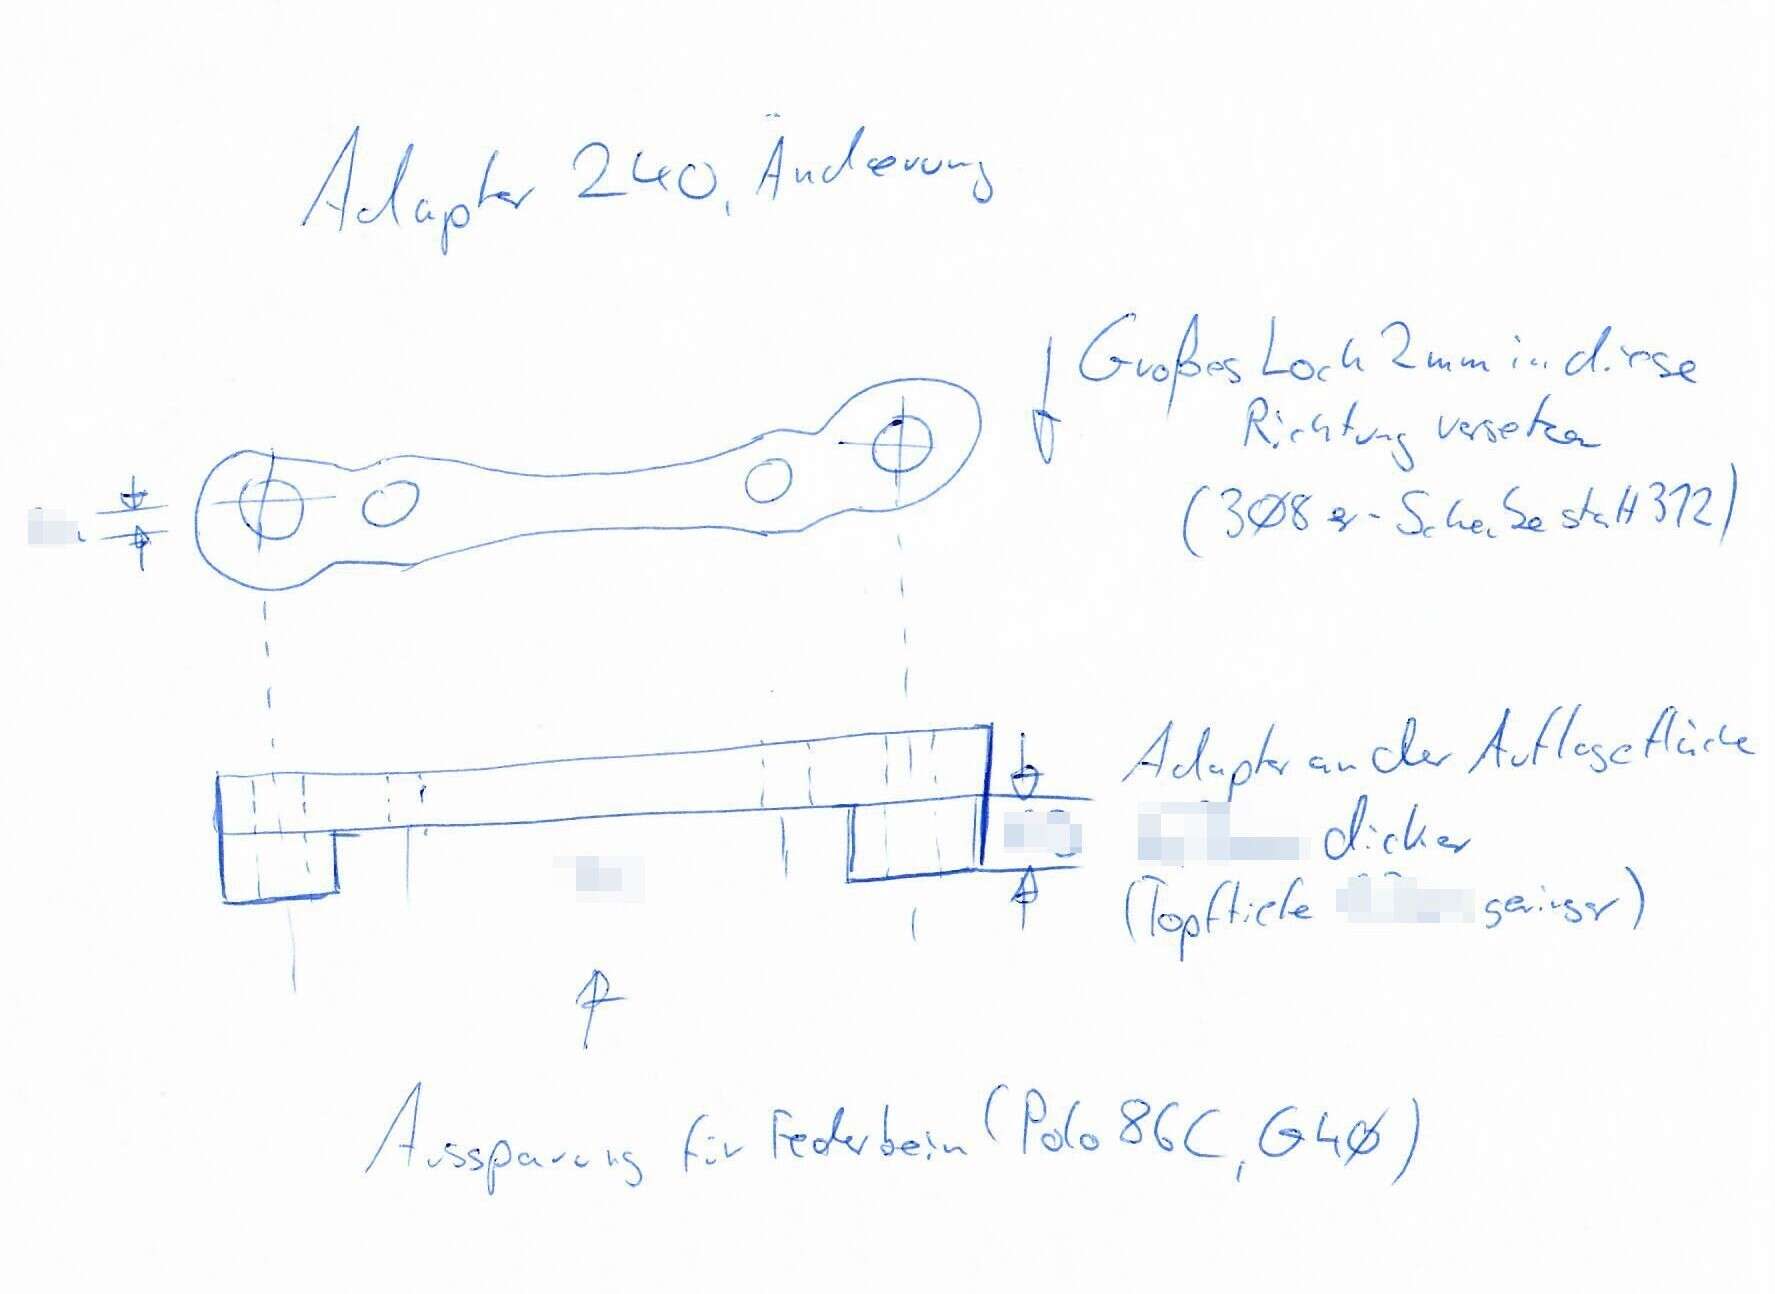 Adapter 240, Änderung
Großes Loch 2mm in diese
Richtung versetzen
(3Ø8er-Scheibe statt 312)
Adapter an der Auflagefläche
dicker
(Topftiefe geringer)
Aussparung für Federbein (Polo 86C, G4Ø)